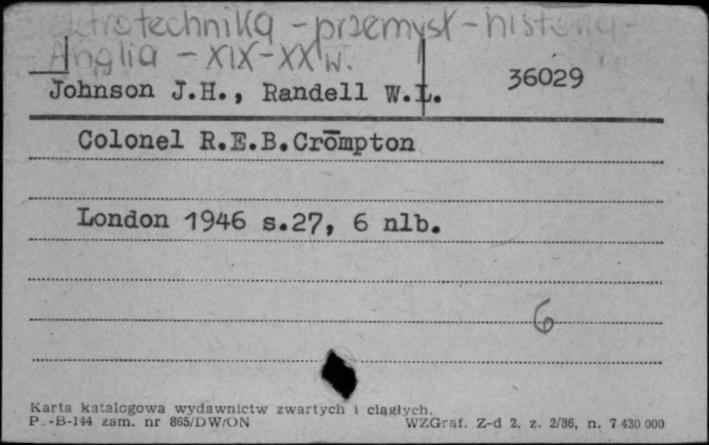 Elektrotechnika - przemysł - historia -
- Anglia - XIX-XX w.
Johnson J.H., Randell W.L.
36029
Colonel R.E.B.Crompton
London 1946 s.27, 6 nlb.
6
Karta katalogowa wydawnictw zwartych i ciągłych.
P.-B-144 zam. nr 865/DW/ON
WZGraf. Z-d 2, z. 2/86, n. 7 430 000